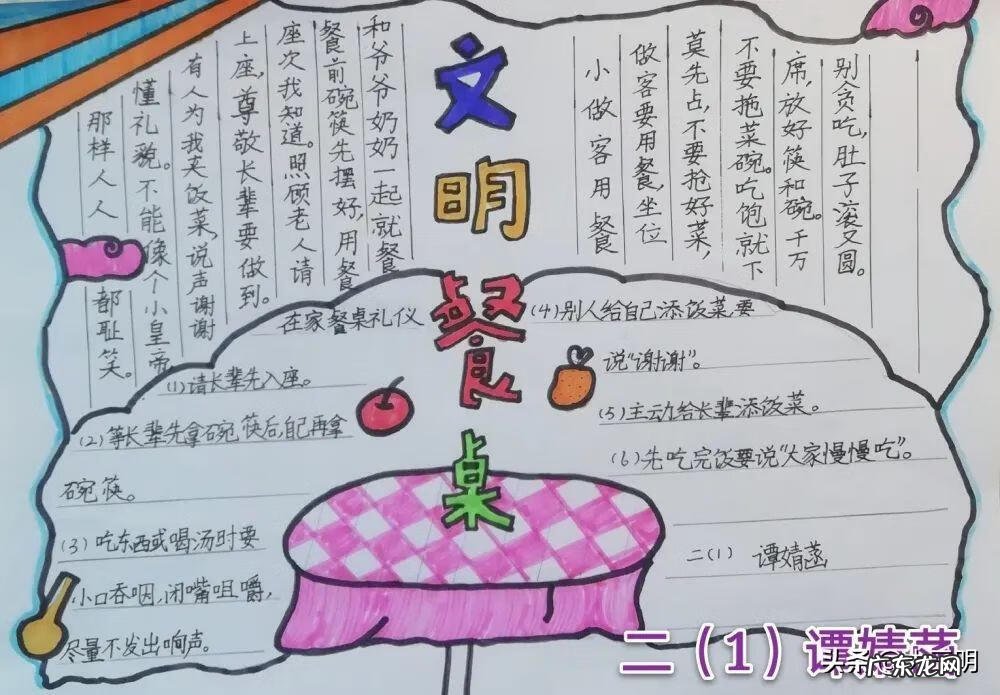 文明餐桌
和爷爷奶奶一起就餐
餐前碗筷先摆好，用餐
座次我知道。照顾老人请
上座，尊敬长辈要做到。
有人为我夹饭菜，说声谢谢
懂礼貌。不能像个小皇帝，
那样人人都耻笑。
小做客用餐
做客要用餐，坐位
莫先占，不要抢好菜，
不要拖菜碗。吃饱就下
席，放好筷和碗。千万
别贪吃，肚子滚又圆。
在家餐桌礼仪
(1)请长辈先入座。
(2)等长辈先拿碗筷后，自己再拿
碗筷。
(3)吃东西或喝汤时要
小口吞咽，闭嘴咀嚼，
尽量不发出响声。
(4)别人给自己添饭菜，要
说“谢谢”。
(5)主动给长辈添饭菜。
(6)先吃完饭要说“大家慢慢吃”。
二(1) 谭婧菡
二（1）谭婧菡
东龙网